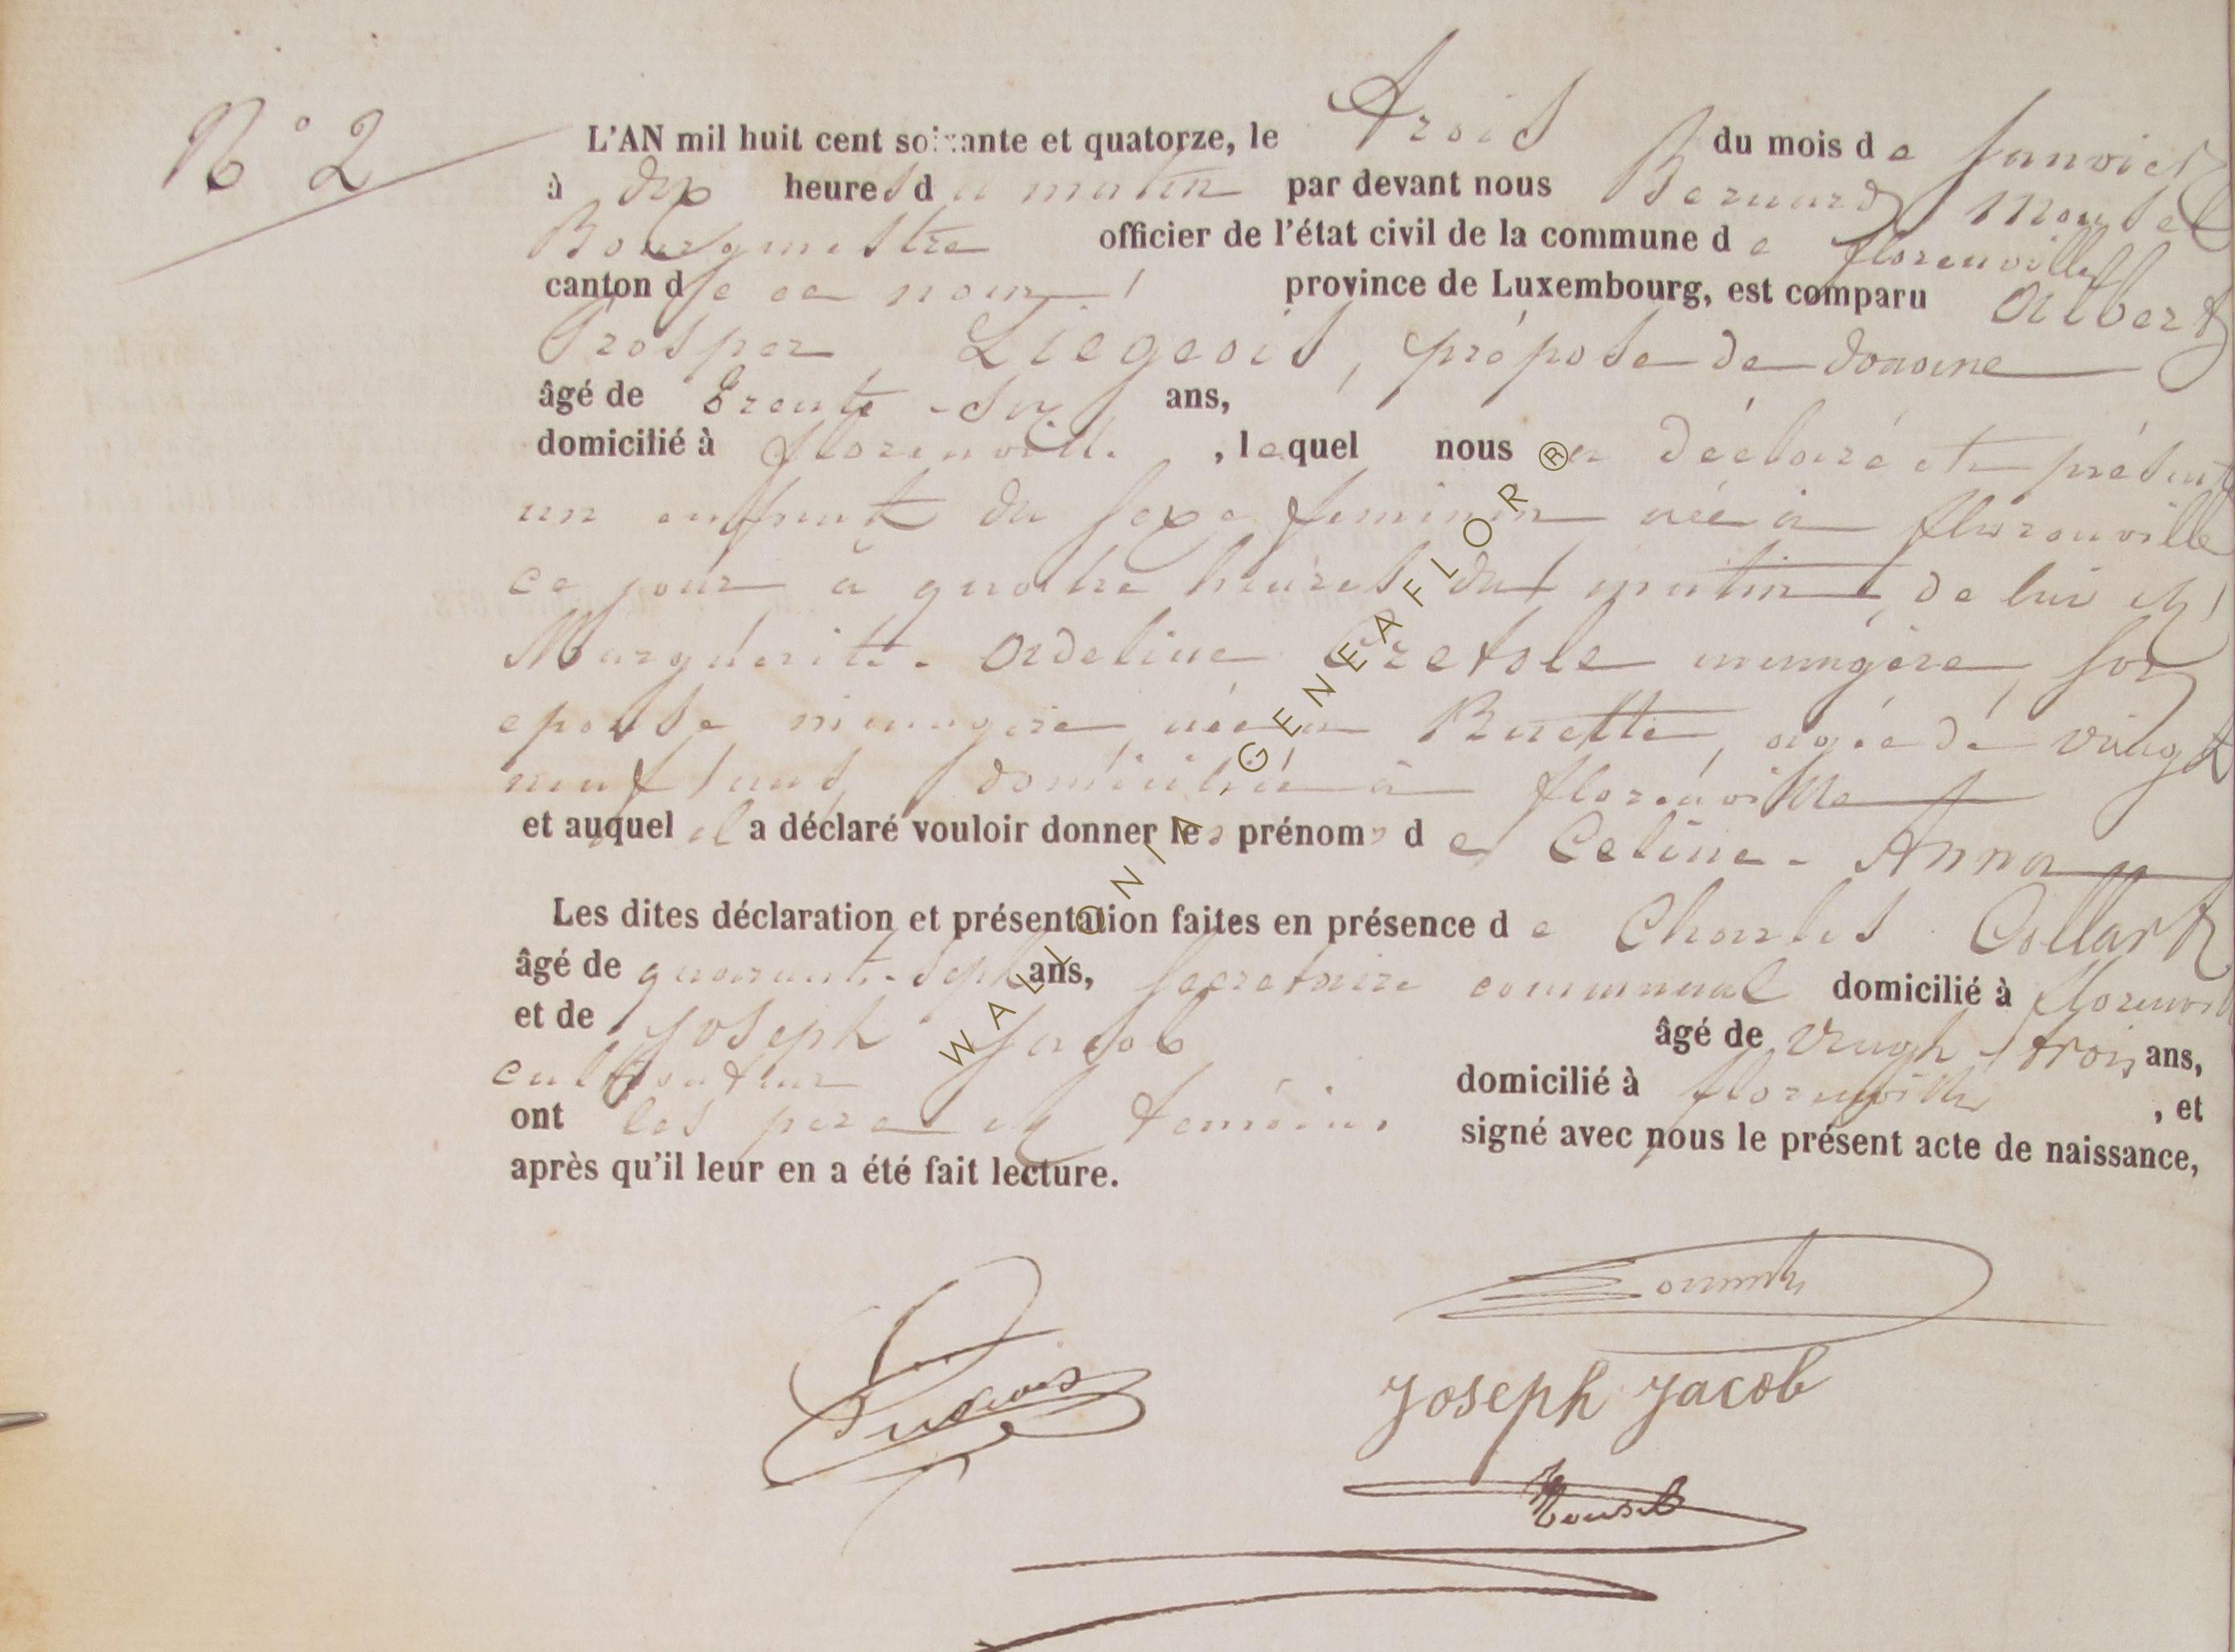 N° 2
L'AN mil huit cent soixante et quatorze, le trois du mois de Janvier
à dix heures du matin par devant nous Bernard Mousel
Bourgmestre officier de l'état civil de la commune de florenville
canton de ce nom province de Luxembourg, est comparu Albert
Prosper Liégeois, préposé de douane
âgé de trente-six ans,
domicilié à florenville, lequel nous a déclaré et présenté
un enfant du sexe feminin née à florenville
ce jour à quatre heures du matin, de lui et
Marguérite-Adeline menagère son
epouse menagère née a âgée de vingt
neuf ans domiciliée à florenville
et auquel il a déclaré vouloir donner les prénoms de Celine-Anna
Les dites déclaration et présentation faites en présence de Charles Collart
âgé de quarante-sept ans, secretaire communal domicilié à florenville
et de Joseph Jacob âgé de vingt-trois ans,
cultivateur domicilié à florenville, et
ont les pere et temoins signé avec nous le présent acte de naissance,
après qu'il leur en a été fait lecture.
Joseph Jacob
Mousel
WALLONIA GENEAFLOR ®